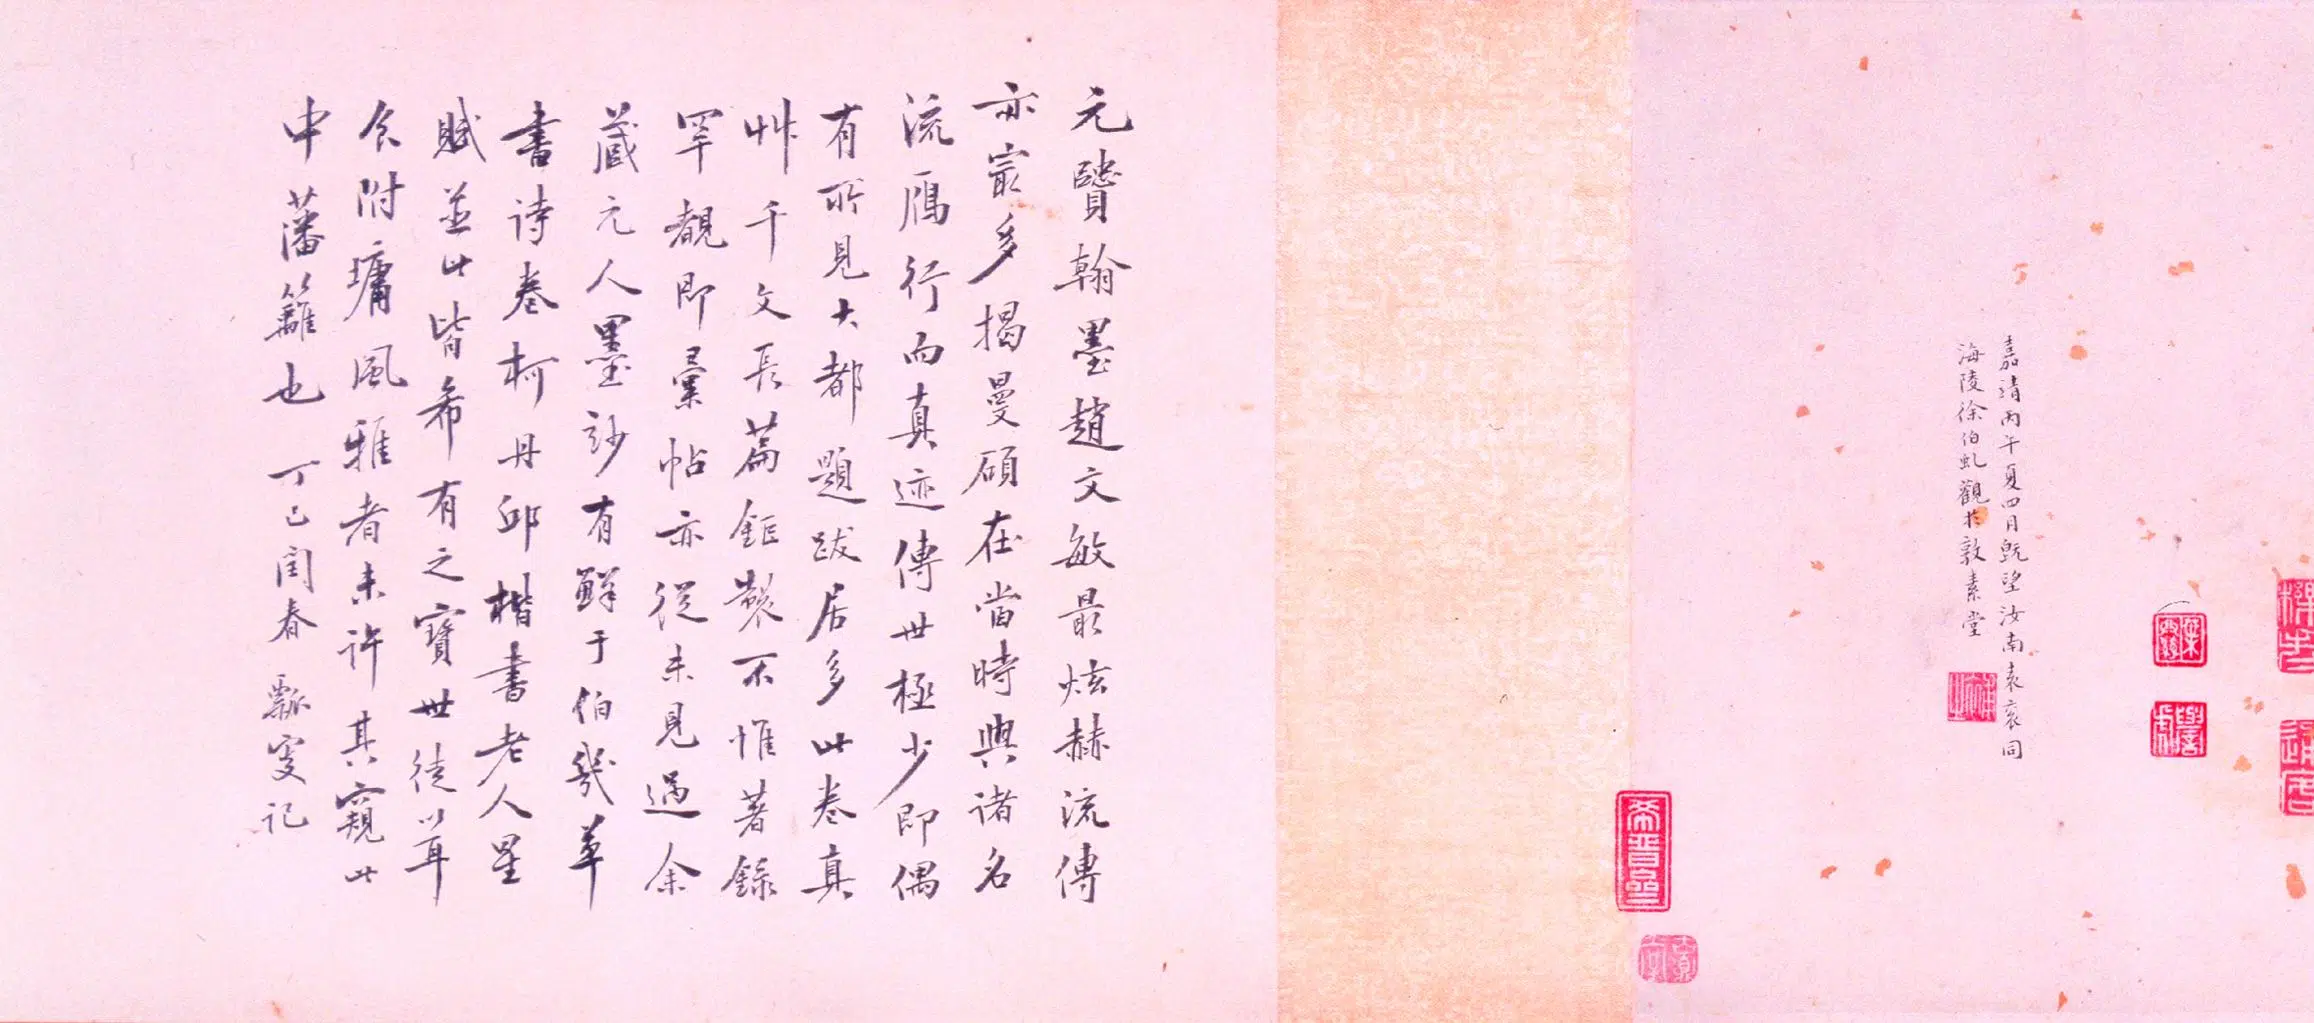 嘉靖丙午夏四月既望汝南袁袠同
海陵徐伯虬觀於敦素堂
元賢翰墨趙文敏最炫赫流傳
亦寂多揭曼碩在當時與諸名
流鴈行而真迹傳世極少即偶
有所見大都題跋居多此卷真
艸千文長篇鉅製不惟著錄
罕覩即彙帖亦從未見過余
藏元人墨妙有鮮于伯幾草
書詩卷柯丹邱楷書老人星
賦並此皆希有之寶世徒以耳
食附墉風雅者未許其窺此
中藩籬也 丁巳閏春 瓢叟記
希晋齋